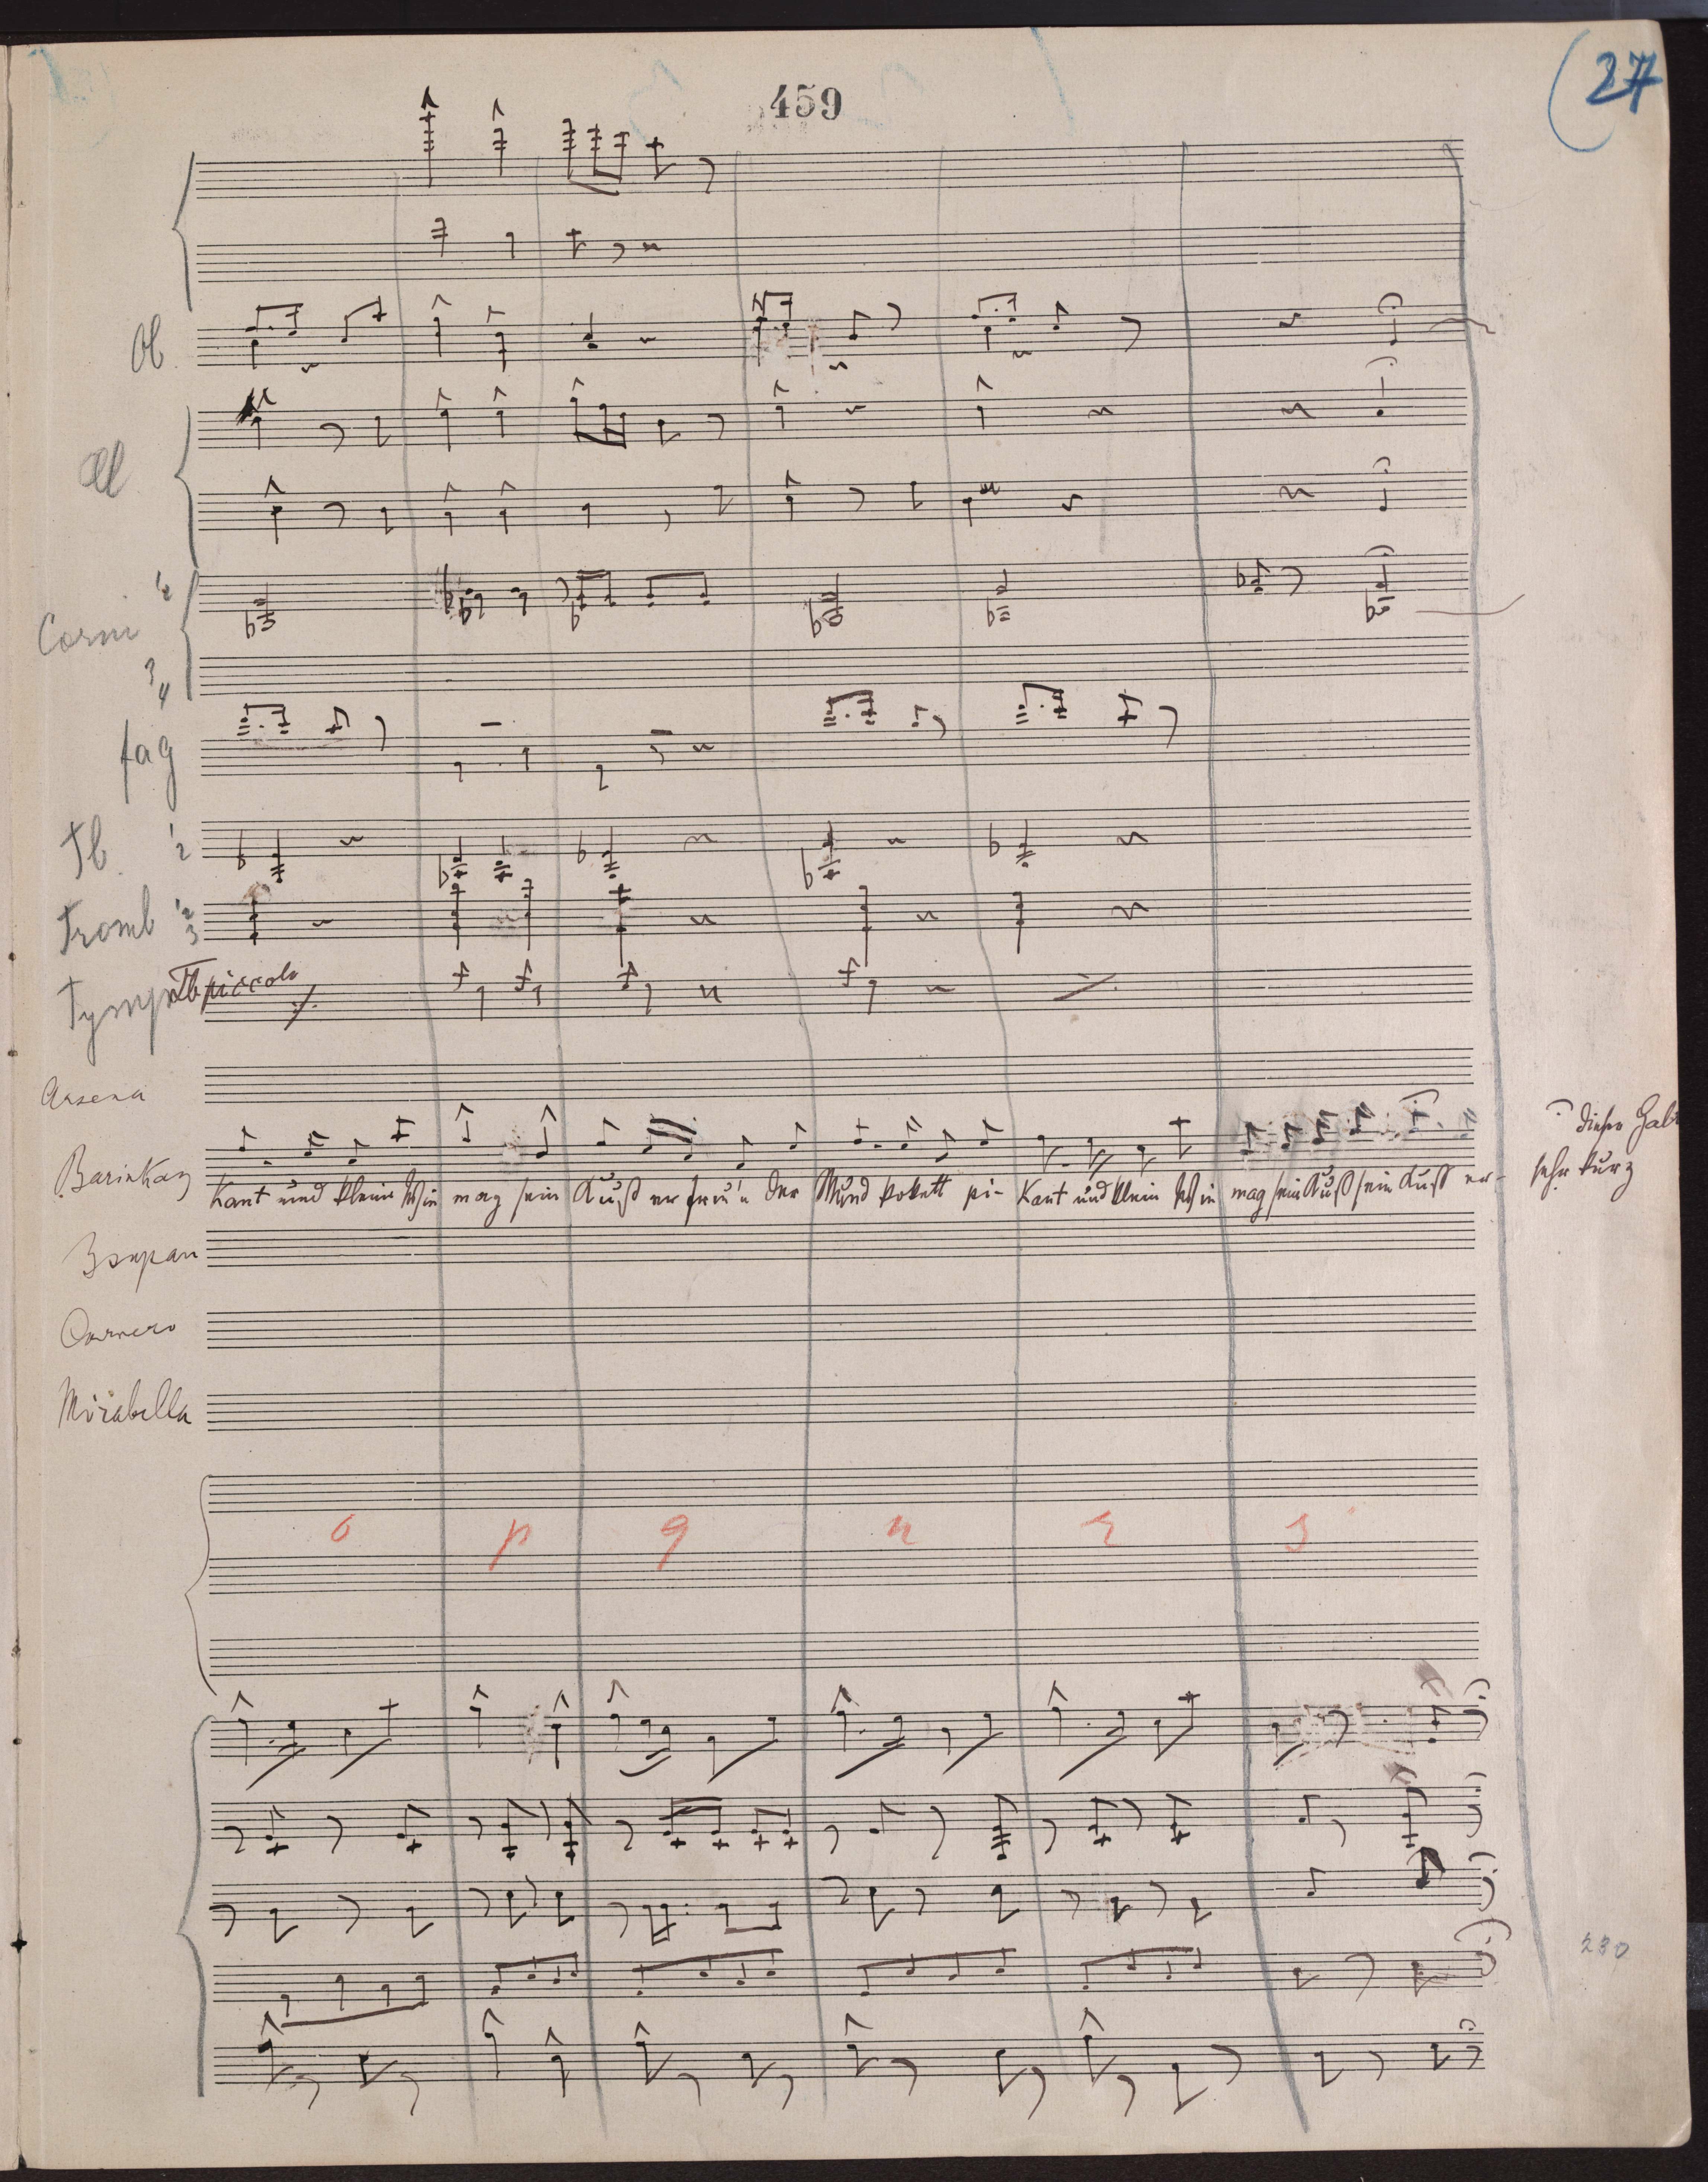 459
27
Ob.
Cl
Corni 1/2
3/4
fag
Tb. 1/2
Tromb 1/2 3
Tymp Tb piccolo
Arsena
Barinkay
kant und klein Ihn mag sein Kuß erfreu'n der Mund kokett pi- kant und klein Ihn mag sein Kuß sein Kuß er-
diesen Halt
sehr kurz
Zsupan
Carnero
Mirabella
o p q n r s
230